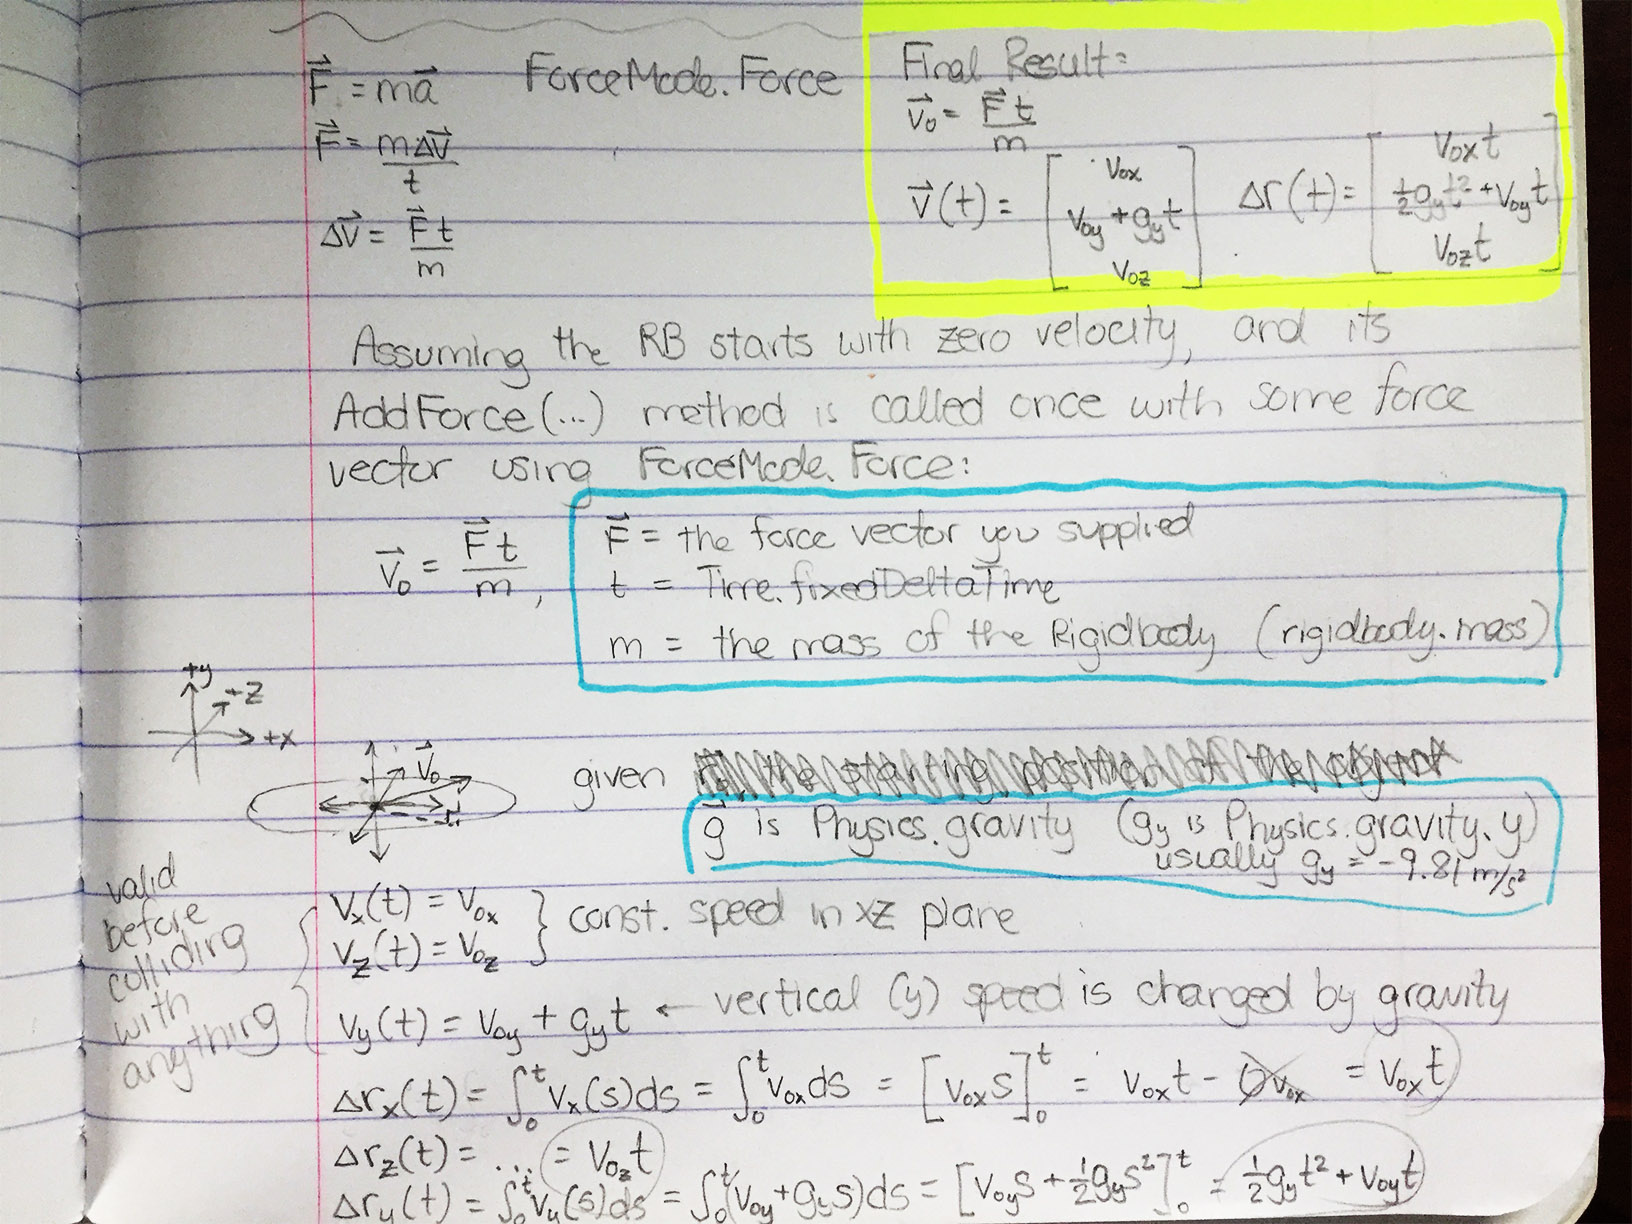 F⃗ = ma⃗
ForceMode.Force
F⃗ = mΔv⃗ / t
Δv⃗ = F⃗ t / m
Final Result:
v⃗₀ = F⃗ t / m
v⃗(t) = [ v₀ₓ ; v₀y + gy t ; v₀z ]   Δr(t) = [ v₀ₓt ; ½gy t² + v₀y t ; v₀z t ]
Assuming the RB starts with zero velocity, and its
AddForce(...) method is called once with some force
vector using ForceMode.Force:
v⃗₀ = F⃗ t / m ,
F⃗ = the force vector you supplied
t = Time.fixedDeltaTime
m = the mass of the Rigidbody (rigidbody.mass)
+y
+z
+x
v⃗₀
given
the starting position of the object
g⃗ is Physics.gravity (gy is Physics.gravity.y)
usually gy = -9.81 m/s²
valid
before
colliding
with
anything
vₓ(t) = v₀ₓ
vz(t) = v₀z
} const. speed in xz plane
vy(t) = v₀y + gy t ← vertical (y) speed is changed by gravity
Δrₓ(t) = ∫₀ᵗ vₓ(s)ds = ∫₀ᵗ v₀ₓ ds = [v₀ₓ s]₀ᵗ = v₀ₓt - 0v₀ₓ = v₀ₓt
Δrz(t) = ... = v₀z t
Δry(t) = ∫₀ᵗ vy(s)ds = ∫₀ᵗ (v₀y + gy s)ds = [v₀y s + ½gy s²]₀ᵗ = ½gy t² + v₀y t